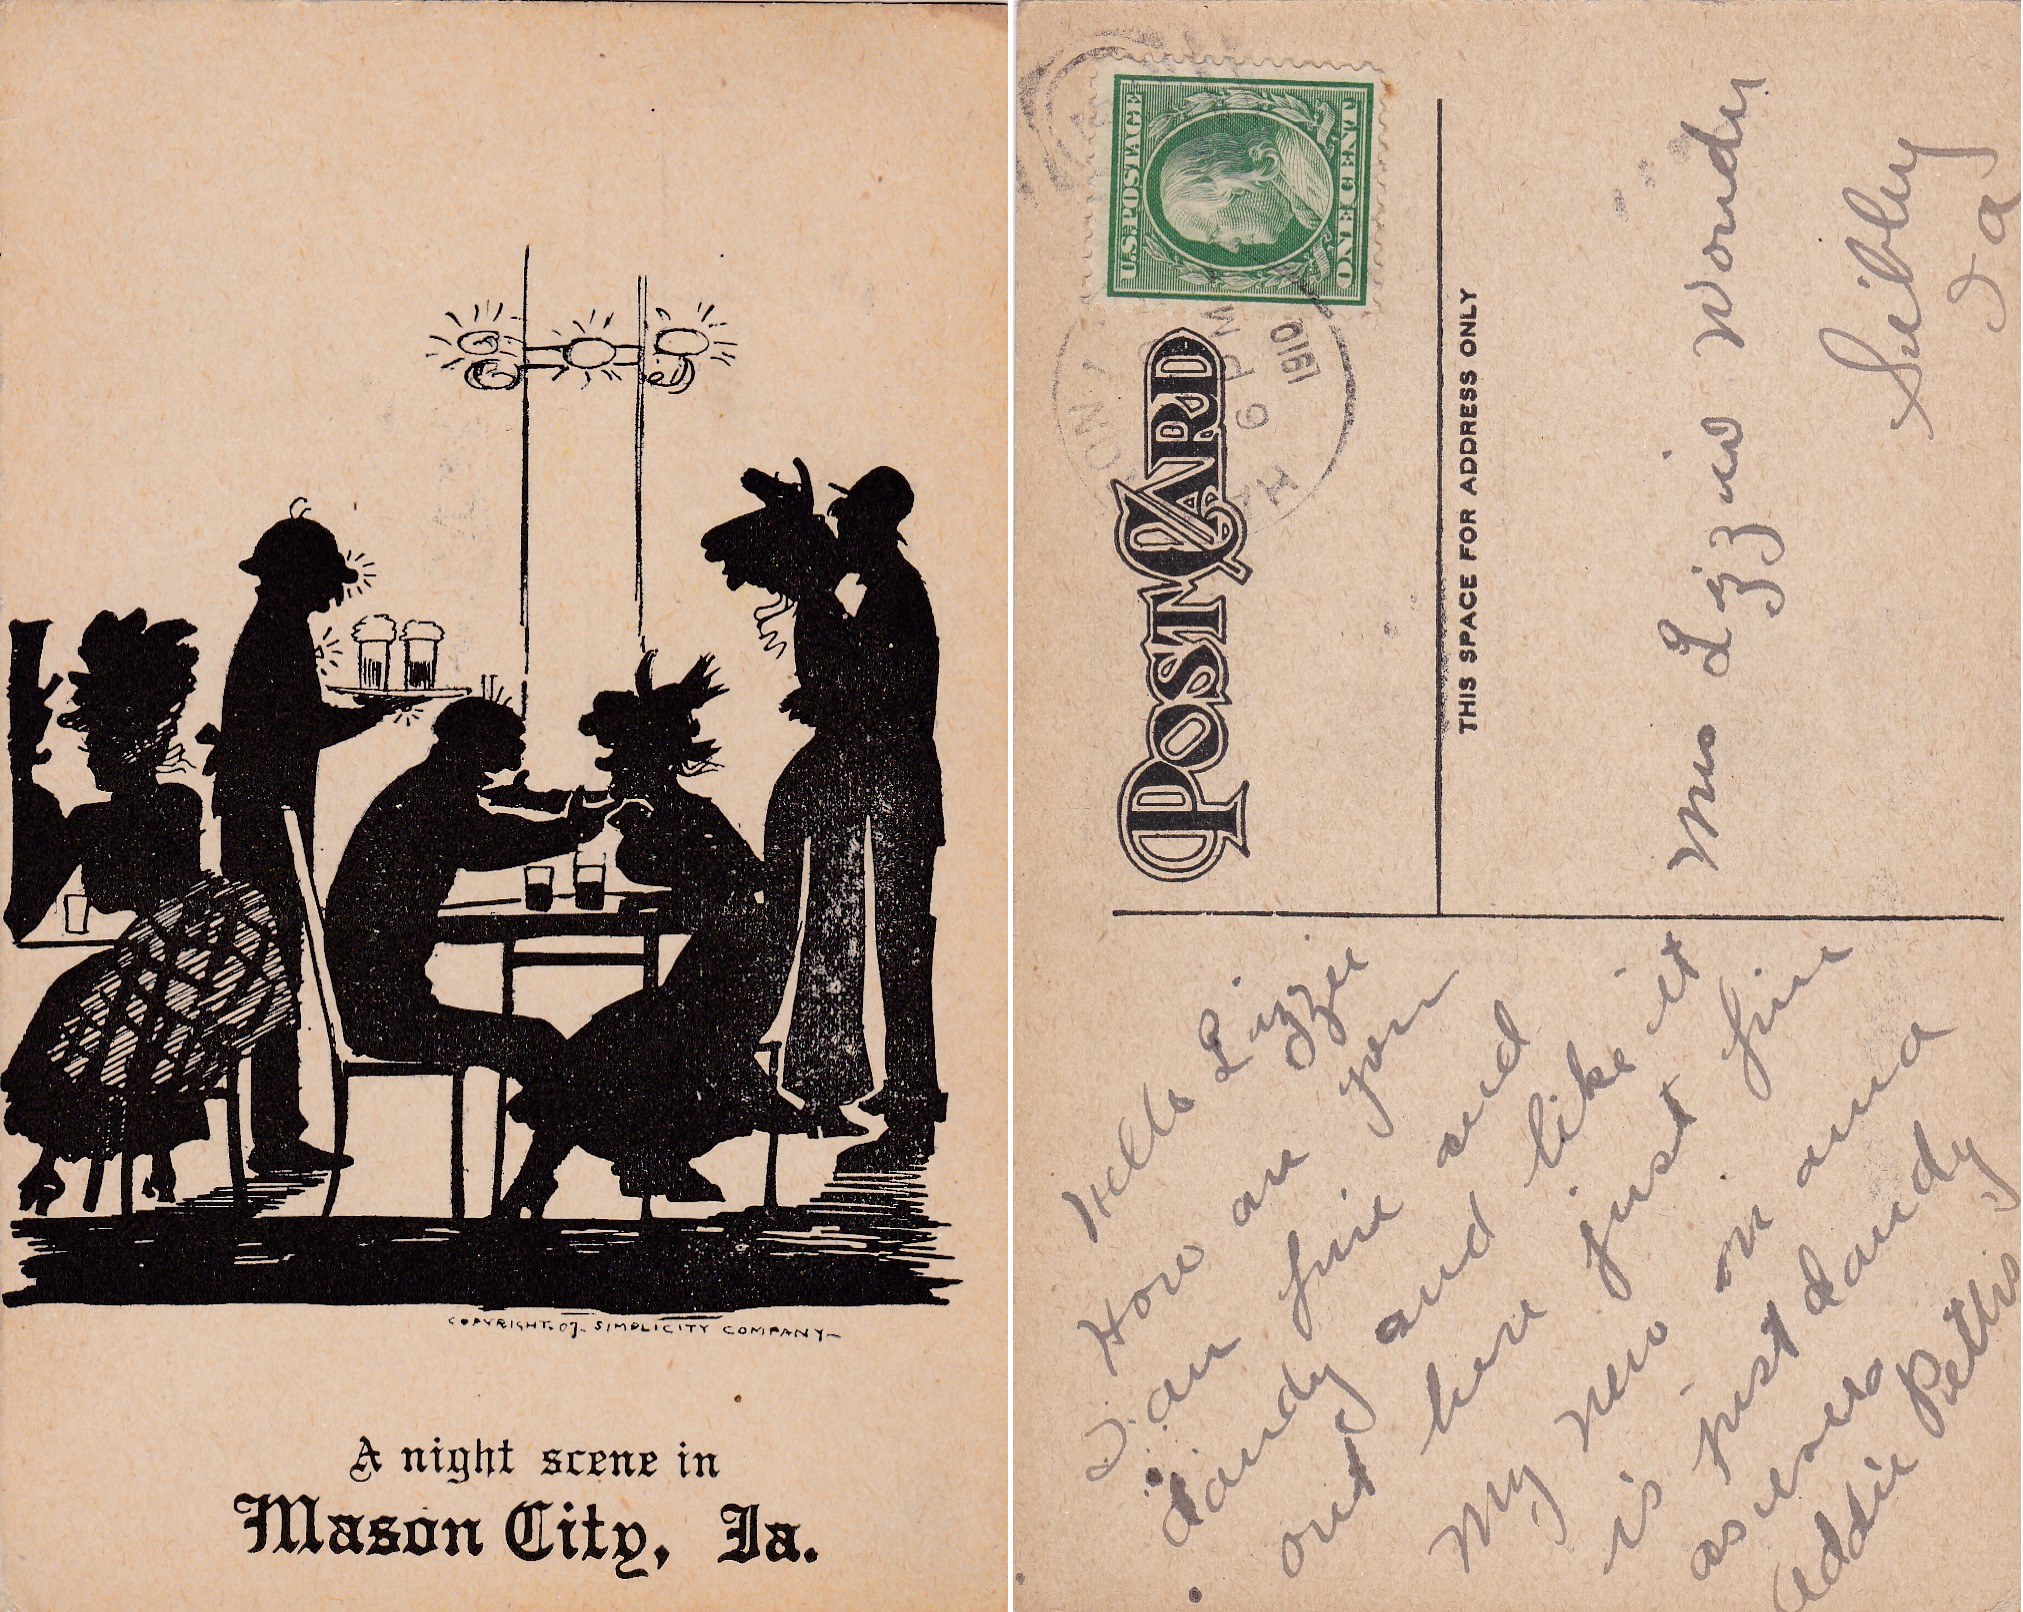 COPYRIGHT. 07. SIMPLICITY COMPANY
A night scene in
Mason City, Ia.
U.S. POSTAGE
ONE CENT
POST CARD
THIS SPACE FOR ADDRESS ONLY
MAY
6
PM
1910
Miss Lizzie
Sibley
Ia
Hello Lizzie
How are you
I am fine and
dandy and like it
out here just fine
My new
is just dandy
as ever
Addie Pettis